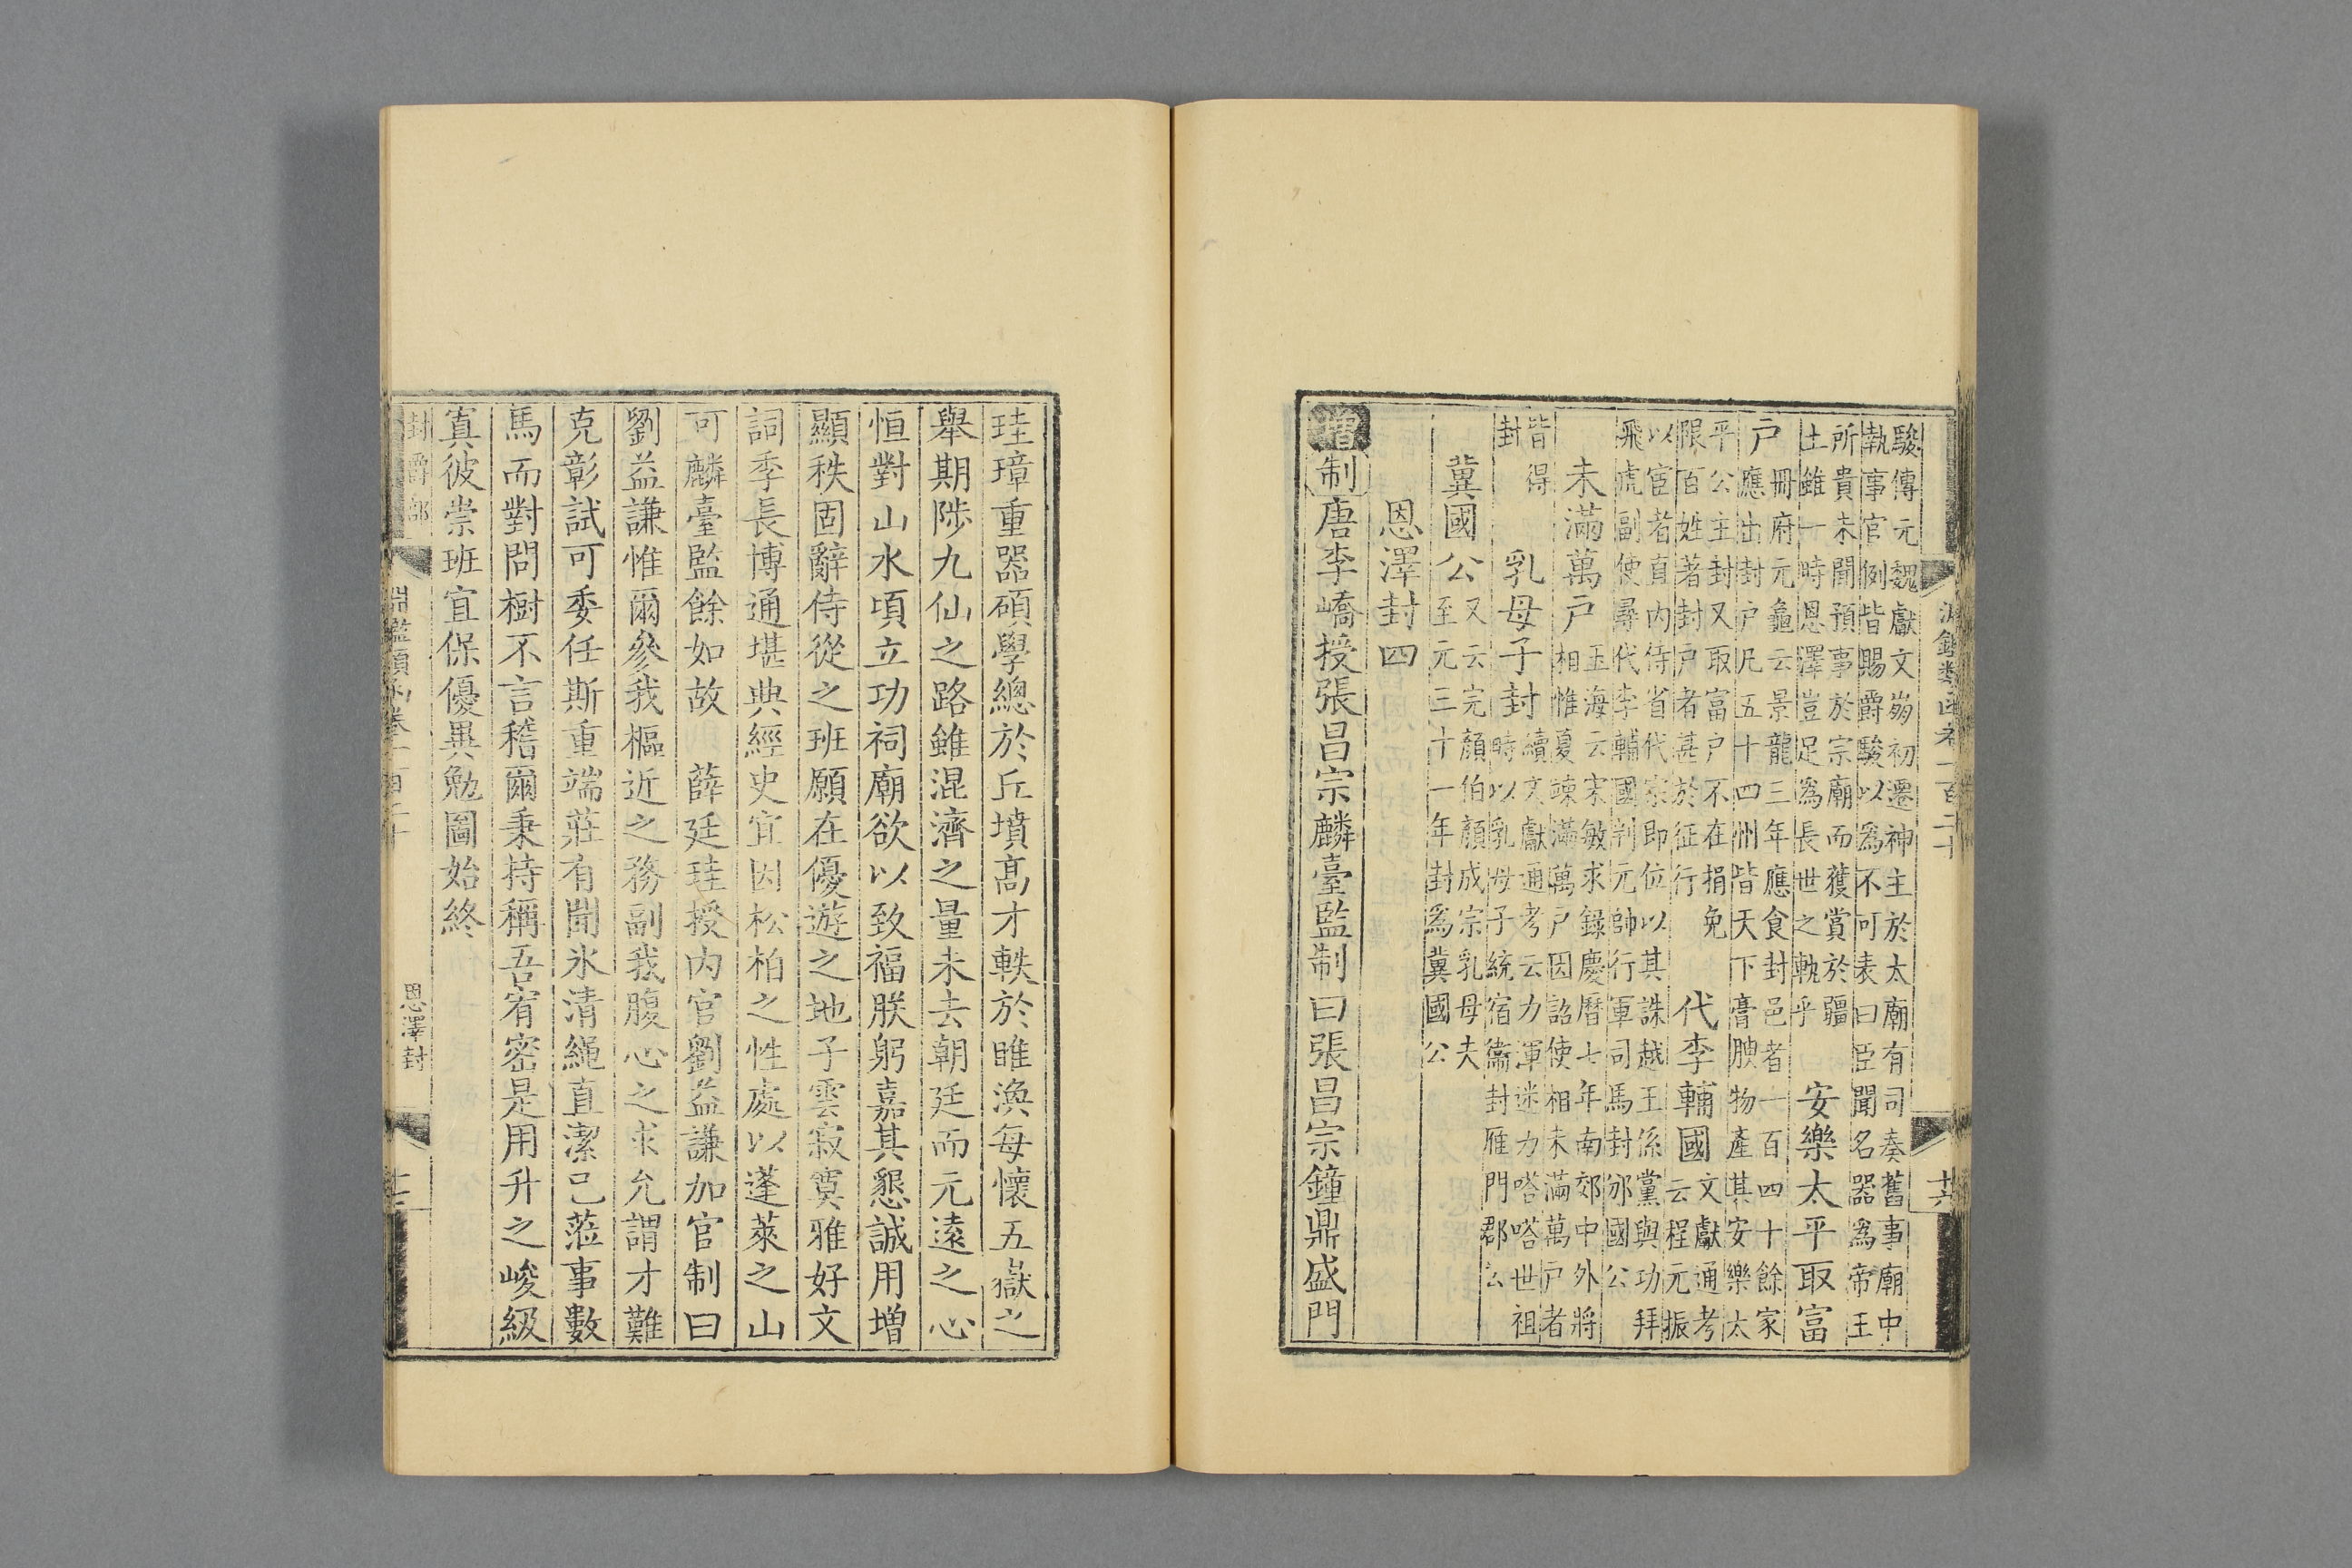 淵鑑類函卷一百二十　十六
駿傳元魏獻文崩初遷神主於太廟有司奏舊事廟中
執事官例皆賜爵駿以爲不可表曰臣聞名器爲帝王
所貴未聞預事於宗廟而獲賞於疆
土雖一時恩澤豈足爲長世之軌乎
安樂太平取富
户
冊府元龜云景龍三年應食封邑者一百四十餘家
應出封户凡五十四州皆天下膏腴物產其安樂太
平公主封又取富户不在捐免
限百姓著封户者甚於征行
代李輔國
文獻通考
云程元振
以宦者直内侍省代宗即位以其誅越王係黨與功拜
飛虎副使尋代李輔國判元帥行軍司馬封邠國公
未滿萬户
玉海云宋敏求錄慶曆七年南郊中外將
相惟夏竦滿萬户因詔使相未滿萬户者
皆得
封
乳母子封
續文獻通考云力渾迷力嗒嗒世祖
時以乳母子統宿衞封雁門郡公
冀國公
又云完顏伯顏成宗乳母夫
至元三十一年封爲冀國公
恩澤封四
增制唐李嶠授張昌宗麟臺監制曰張昌宗鐘鼎盛門
珪璋重器碩學總於丘墳高才軼於睢渙每懷五嶽之
舉期陟九仙之路雖混濟之量未去朝廷而元遠之心
恒對山水頃立功祠廟欲以致福朕躬嘉其懇誠用增
顯秩固辭侍從之班願在優遊之地子雲寂寞雅好文
詞季長博通堪典經史宜因松柏之性處以蓬萊之山
可麟臺監餘如故　薛廷珪授内官劉益謙加官制曰
劉益謙惟爾參我樞近之務副我腹心之求允謂才難
克彰試可委任斯重端莊有聞氷清繩直潔己蒞事數
馬而對問樹不言稽爾秉持稱吾宥密是用升之峻級
寘彼崇班宜保優異勉圖始終
封爵部　淵鑑類函卷一百二十　恩澤封